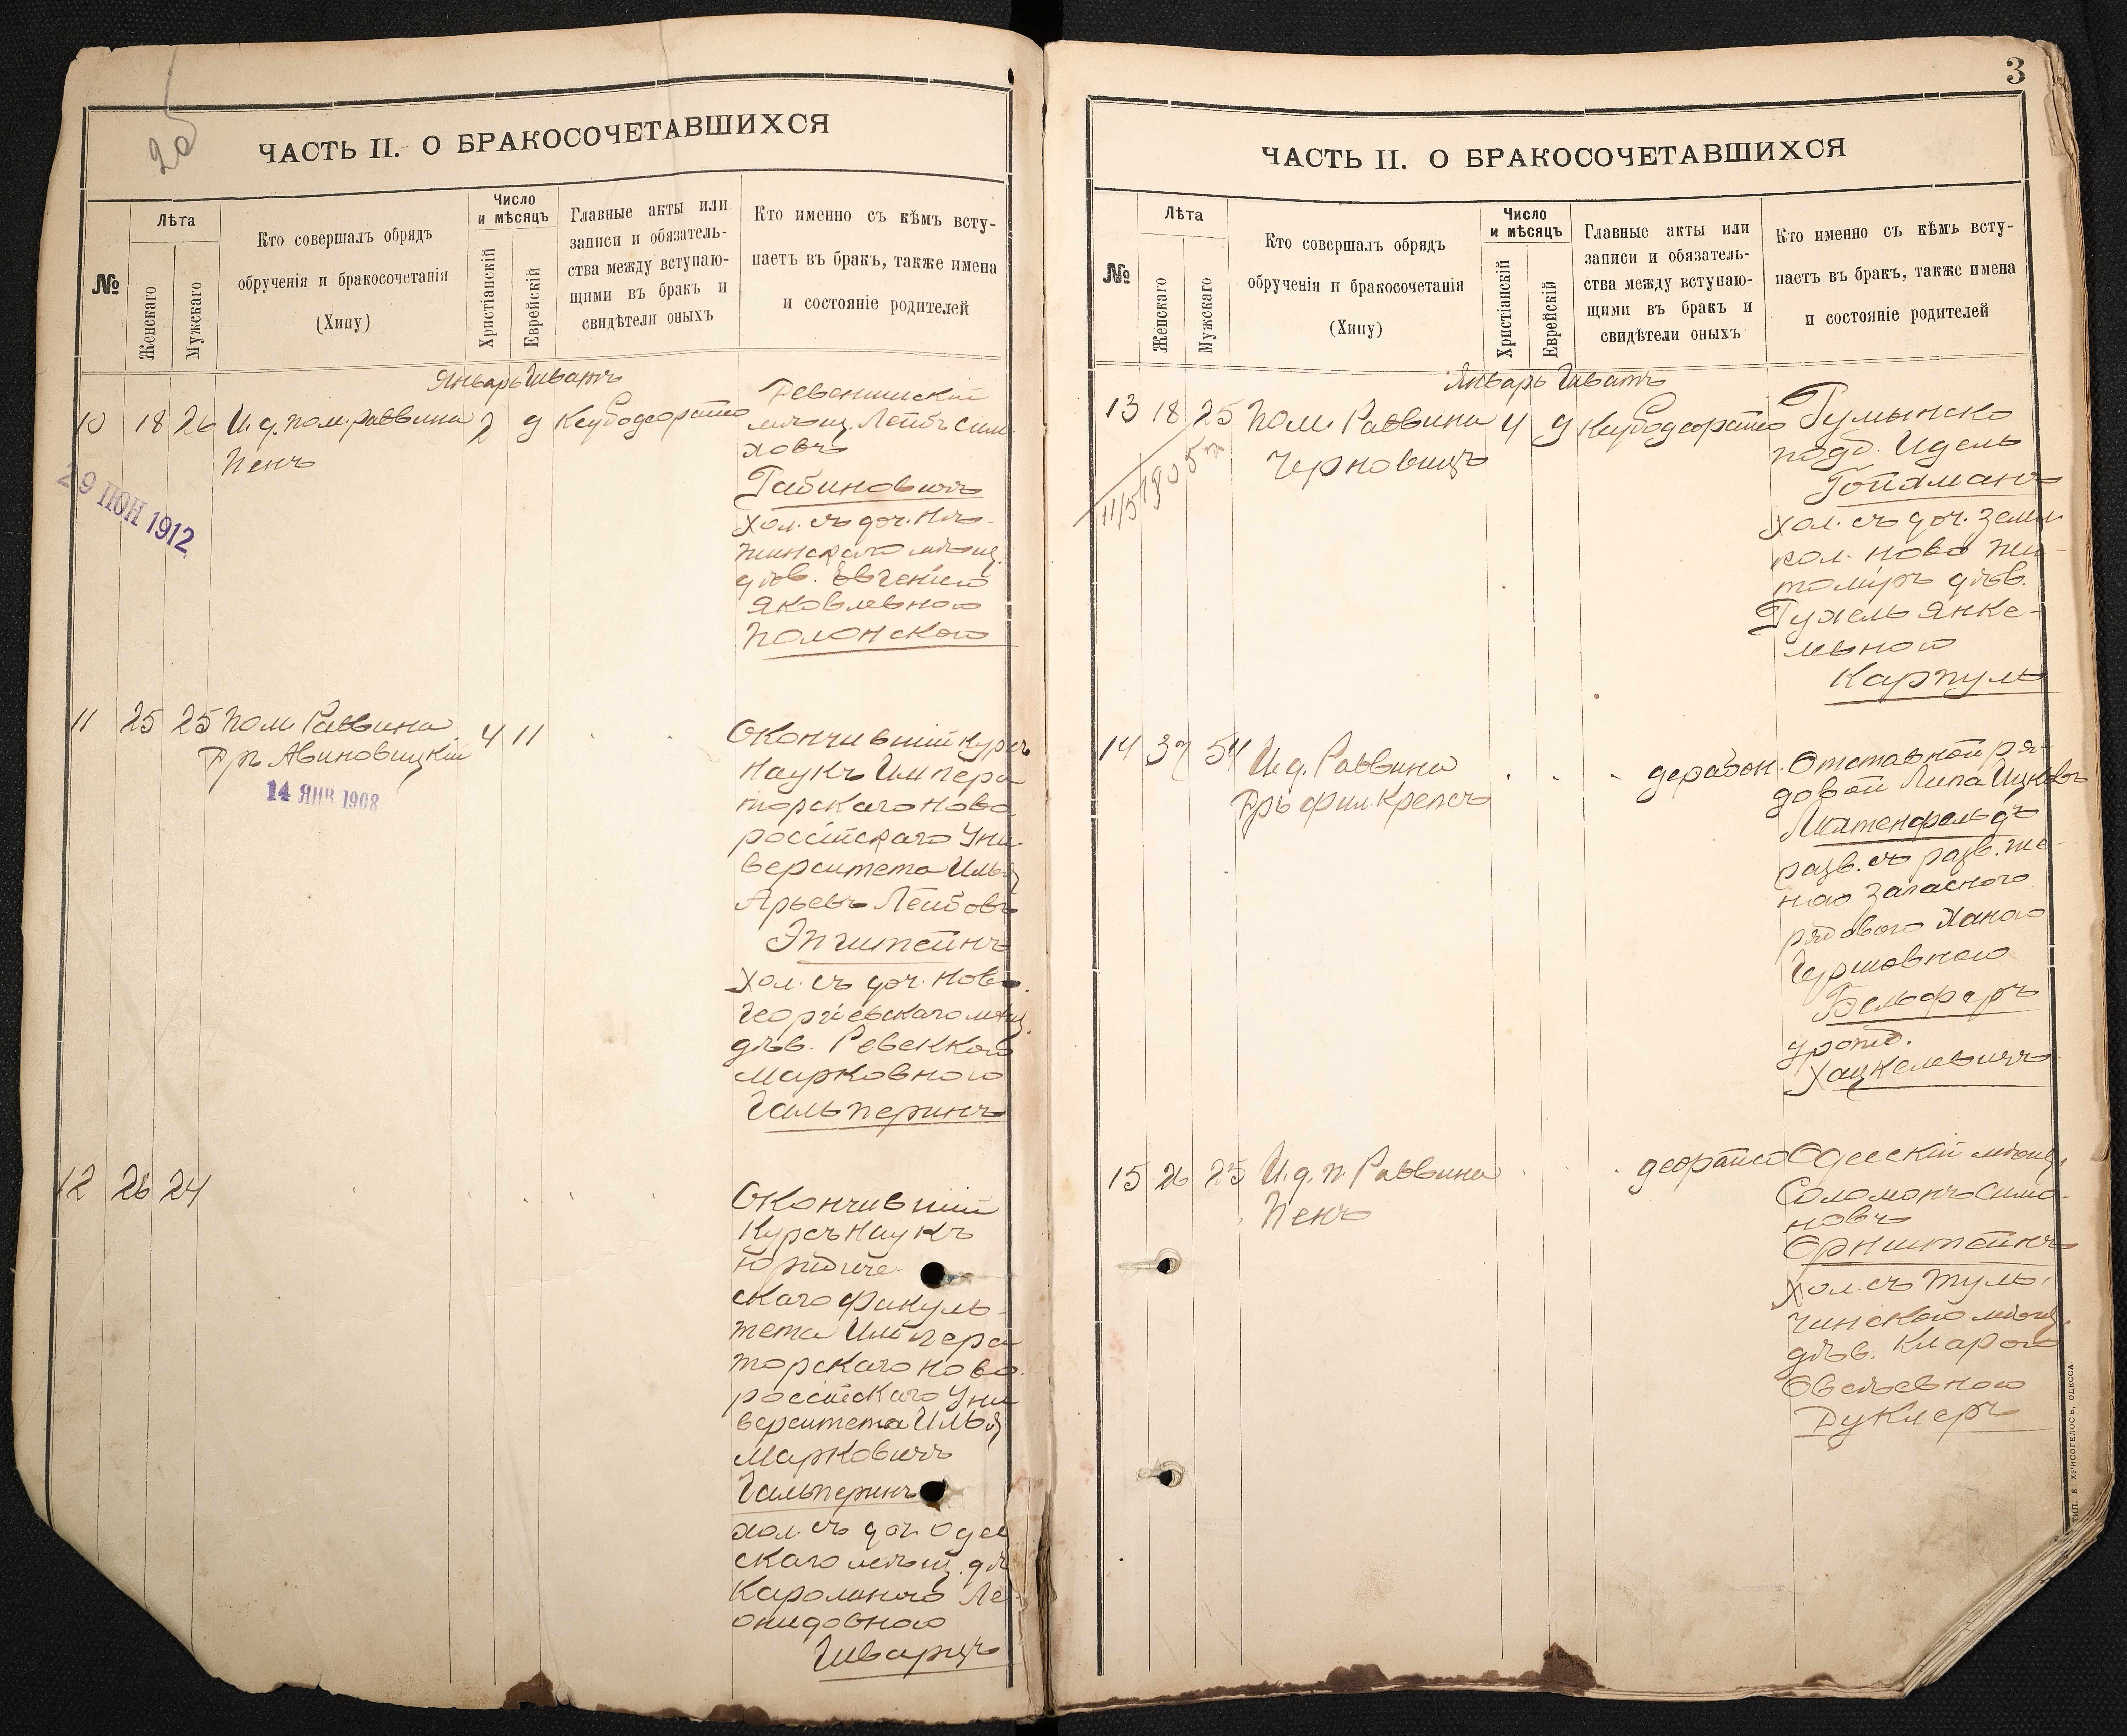 2об
ЧАСТЬ II. О БРАКОСОЧЕТАВШИХСЯ
№
Лѣта
Женскаго
Мужскаго
Кто совершалъ обрядъ
обрученія и бракосочетанія
(Хипу)
Число
и мѣсяцъ
Христіанскій
Еврейскій
Главные акты или
записи и обязатель-
ства между вступаю-
щими въ бракъ и
свидѣтели оныхъ
Кто именно съ кѣмъ всту-
паетъ въ бракъ, также имена
и состояніе родителей
Январь Шватъ
10 18 26 И. д. пом. раввина 2 9
Пенъ
29 ІЮН 1912
мѣщ. Лейбъ Сим-
ховъ
Рабиновичъ
хол. съ доч. Нѣ-
жинскаго мѣщ.
дѣв. Евгеніею
Яковлевною
Полонскою
11 25 25 Пом. Раввина 4 11
Дръ Авиновицкій
14 ЯНВ 1908
Окончившій курсъ
наукъ Импера
торскаго Ново
россійскаго Уни-
верситета Илья
Арьевъ Лейбовъ
Эпштейнъ
хол. съ доч. Ново-
георгіевскаго мѣщ.
дѣв. Ревеккою
Марковною
Гальперинъ
12 26 24
Окончившій
Курсъ наукъ
Юридиче-
скаго Факуль-
тета Импера
торскаго Ново-
россійскаго Уни
верситета Илья
Марковичъ
Гальперинъ
хол. съ доч. Одес
скаго мѣщ. дѣ
Каролиною Ле-
онидовною
Шварцъ
3
ЧАСТЬ II. О БРАКОСОЧЕТАВШИХСЯ
№
Лѣта
Женскаго
Мужскаго
Кто совершалъ обрядъ
обрученія и бракосочетанія
(Хипу)
Число
и мѣсяцъ
Христіанскій
Еврейскій
Главные акты или
записи и обязатель-
ства между вступаю-
щими въ бракъ и
свидѣтели оныхъ
Кто именно съ кѣмъ всту-
паетъ въ бракъ, также имена
и состояніе родителей
Январь Шватъ
13 18 25 Пом. Раввина 4 9
Черновицъ
Румынско
подд. Идель
Гойхманъ
хол. съ доч. земл.
кол. Ново Жи-
томіръ дѣв.
Рухель Янке-
левною
Карпуль
14 37 54 И. д. Раввина
Дръ Фил. Крепсъ
Отставной ря-
довой Липа Ицковъ
разв. съ разв. же-
ною запасного
рядового Ханою
Гершовною
Бельферъ
урожд.
Хацкелевичъ
15 26 25 И. д. п. Раввина
Пенъ
Одесскій мѣщ.
Соломонъ Симо-
новъ
Орнштейнъ
хол. съ Туль-
чинскою мѣщ.
дѣв. Кларою
Овсѣевною
Дуклеръ
ТИП. Е. ХРИСОГЕЛОСЪ, ОДЕССА